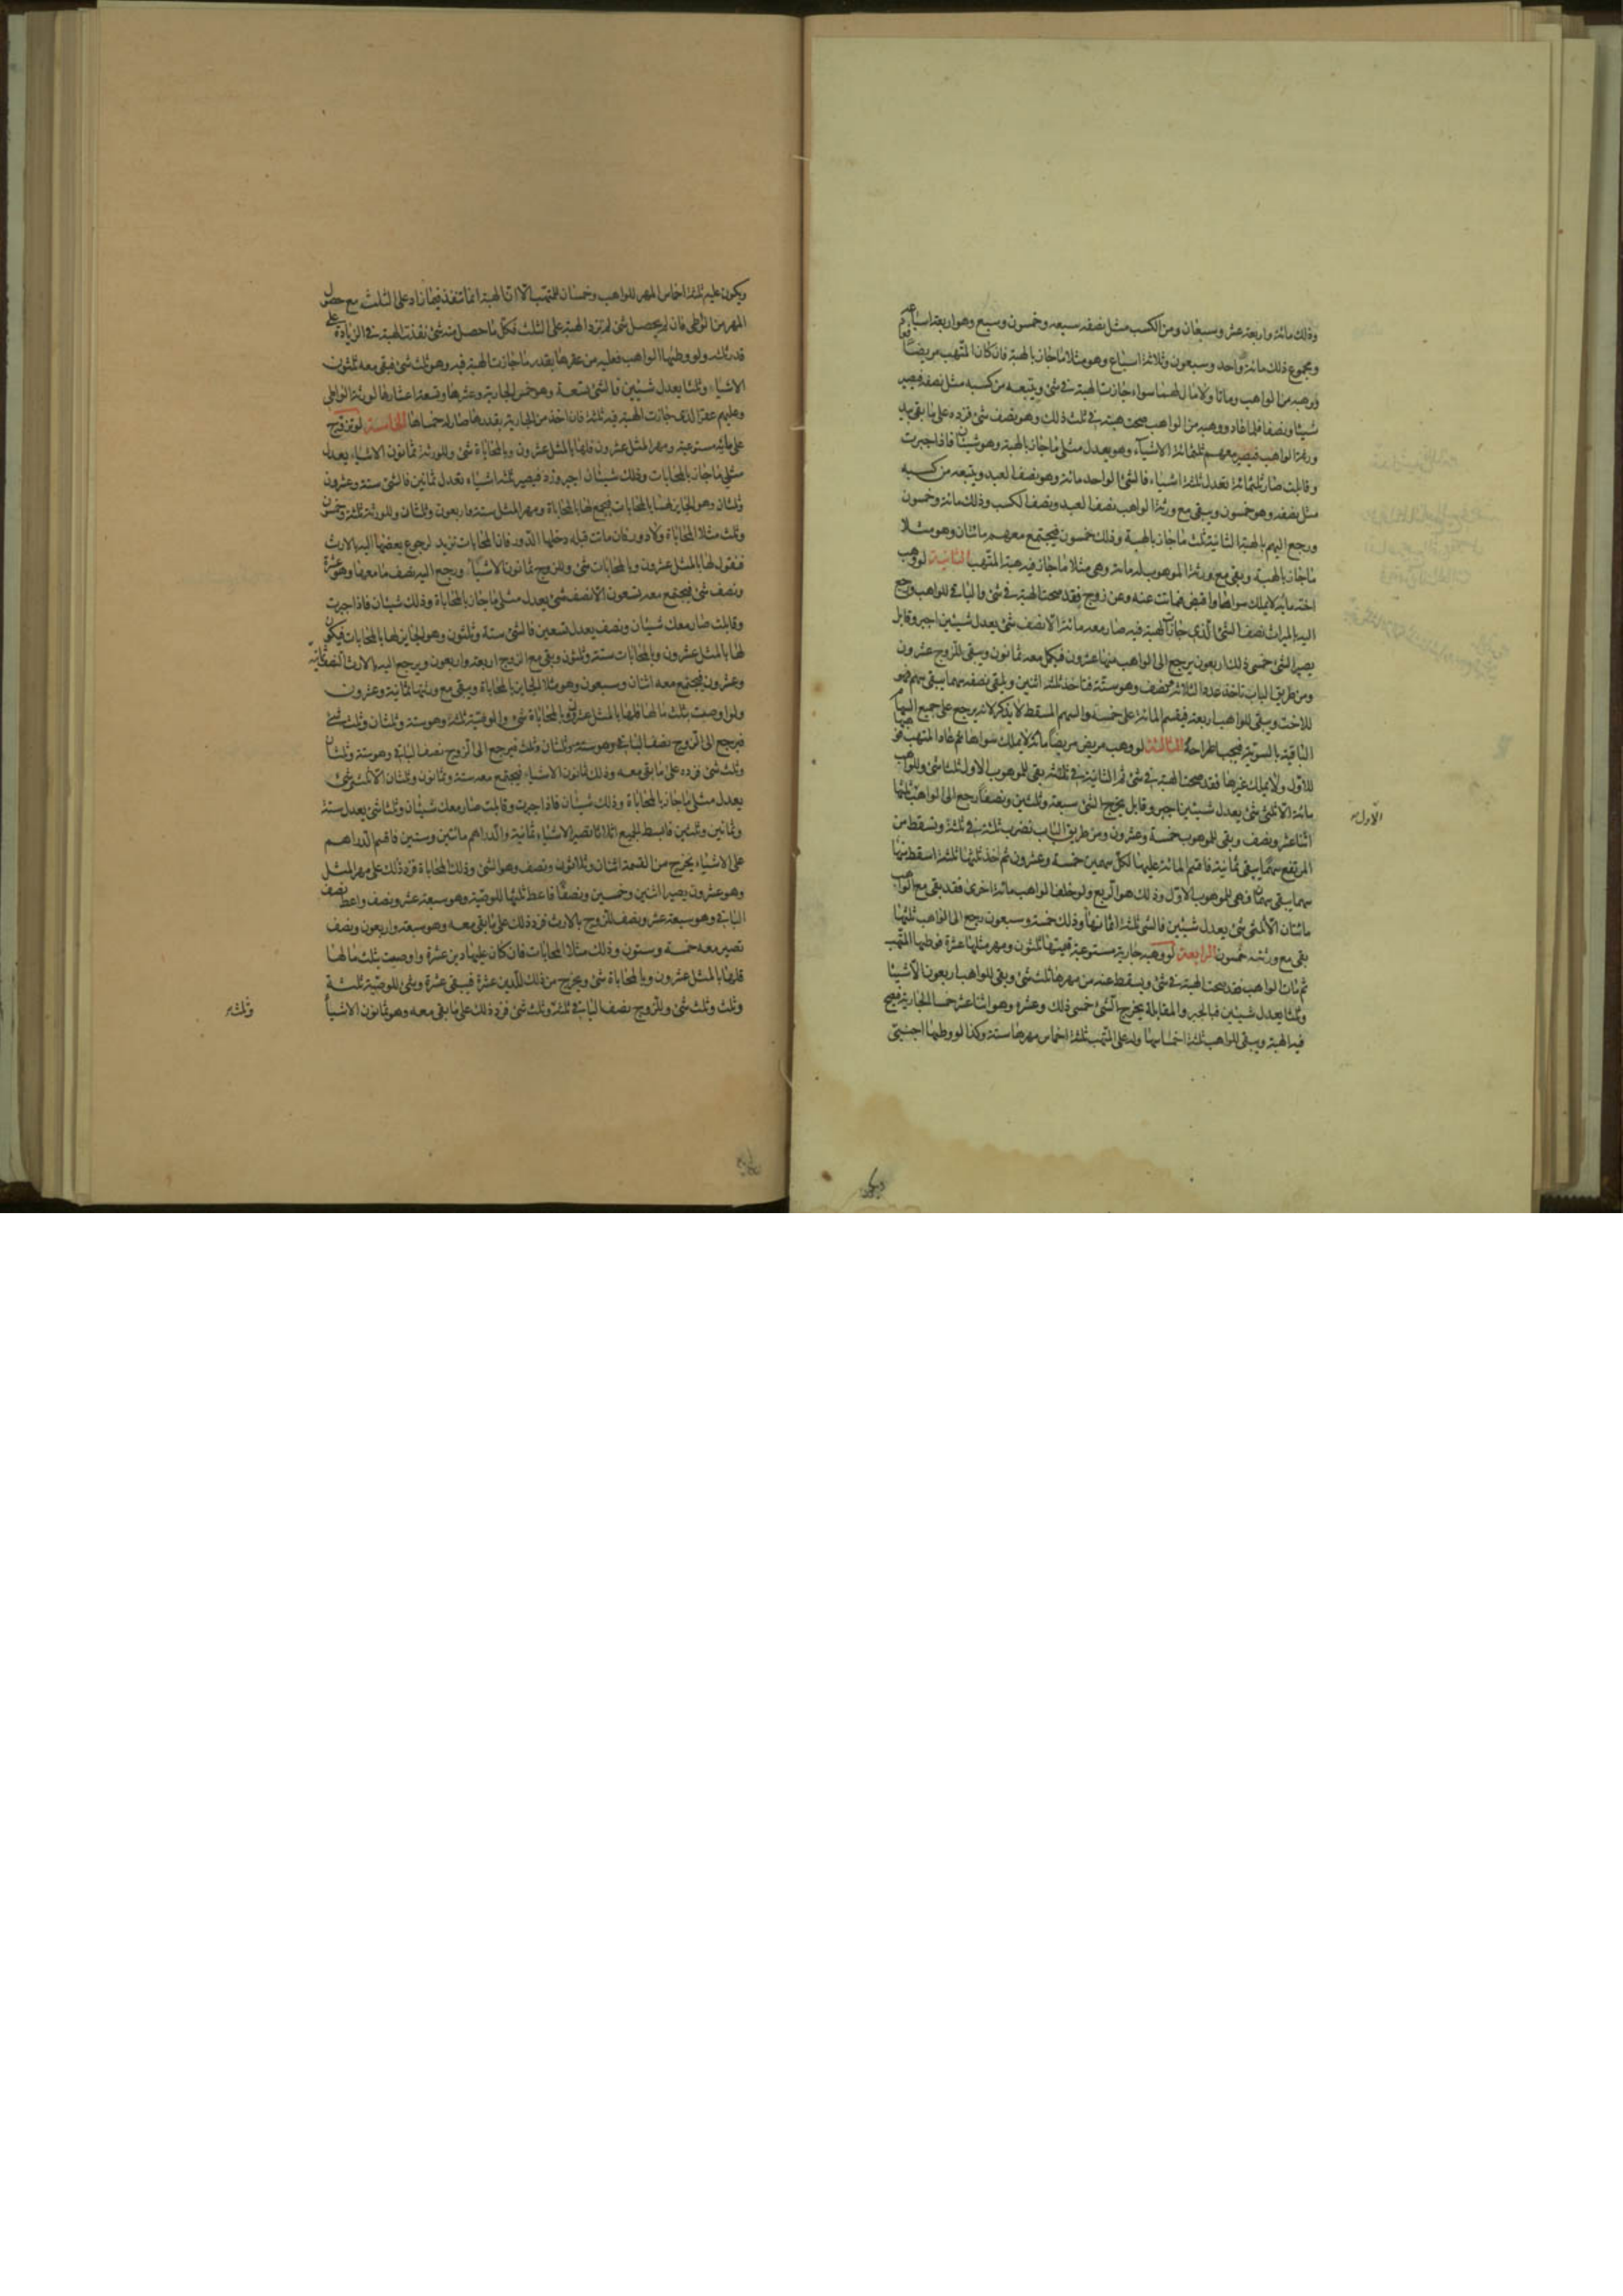 وذلك مائة واربعة عشر وسبعان ومن الكسب مثل نصفه سبعة وخمسون وسبع وهو اربعة اسباعهم
ومجموع ذلك مائة وواحد وسبعون وثلاثة اسباع وهو مثلا ما جاز بالهبة فان كان المتهب مريضا
ووهبه من الواهب وماتا ولا مال لهما سواه جازت الهبة في شئ ويتبعه من كسبه مثل نصفه فيصير
شيئا ونصفا فلما عاد ووهبه من الواهب صحت هبته في ثلث ذلك وهو نصف شئ فزده على ما بقي بيد
ورثة الواهب فيصير معهم ثلثمائة الا شيئا وهو يعدل مثلي ما جاز بالهبة وهو شيئان فاذا جبرت
وقابلت صار ثلثمائة تعدل ثلثة اشياء فالشئ الواحد مائة وهو نصف العبد ويتبعه من كسبه
مثل نصفه وهو خمسون ويبقى مع ورثة الواهب نصف العبد ونصف الكسب وذلك مائة وخمسون
ورجع اليهم بالهبة الثانية ثلث ما جاز بالهبة وذلك خمسون فيجتمع معهم مائتان وهو مثلا
ما جاز بالهبة وبقي مع ورثة الموهوب له مائة وهي مثلا ما جاز فيه هبة المتهب الثانية لو وهب
اخته مائة لا يملك سواها واقبضها فماتت عنه وعن زوج فقد صحت الهبة في شئ والباقي للواهب ورجع
اليه بالميراث نصف الشئ الذي جازت الهبة فيه صار معه مائة الا نصف شئ يعدل شيئين اجبر وقابل
يصير الشئ خمسي ذلك اربعون يرجع الى الواهب منها عشرون فيكمل معه ثمانون ويبقى للزوج عشرون
ومن طريق الباب تاخذ عدد الثلاثة نصف وهو ستة فتاخذ ثلثه اثنين ويلقى نصفه سهما يبقى سهم فهو
للاخت ويبقى للواهب اربعة فيقسم المائة على خمسة والسهم المسقط لا يذكر لانه يرجع على جميع السهام
الباقية بالسوية فيجب اطراحه الثالثة لو وهب مريض مريضا مائة لا يملك سواها ثم عاد المتهب فوهبها
للاول ولا يملك غيرها فقد صحت الهبة في شئ ثم الثانية في ثلثه بقي للموهوب الاول ثلثا شئ وللواهب
مائة الا ثلثي شئ يعدل شيئين اجبر وقابل يخرج الشئ سبعة وثلثين ونصفا رجع الى الواهب ثلثها
اثنا عشر ونصف وبقي للموهوب خمسة وعشرون ومن طريق الباب نضرب ثلثة في ثلثة ونسقط من
المرتفع سهما يبقى ثمانية فاقسم المائة عليها لكل سهمين خمسة وعشرون ثم خذ ثلثها ثلثة اسقط منها
سهما يبقى سهمان فهي للموهوب الاول وذلك هو الربع ولو خلف الواهب مائة اخرى فقد بقي مع الواهب
مائتان الا ثلثي شئ يعدل شيئين فالشئ ثلثة اثمانها وذلك خمسة وسبعون رجع الى الواهب ثلثها
بقي مع ورثته خمسون الرابعة لو وهبه جارية مستوعبة قيمتها ثلثون ومهر مثلها عشرة فوطيها المتهب
ثم مات الواهب فقد صحت الهبة في شئ ويسقط عنه من مهرها ثلث شئ وبقي للواهب اربعون الا شيئا
وثلثا يعدل شيئين فبالجبر والمقابلة يخرج الشئ خمسي ذلك وعشره وهو اثنا عشر خمسا الجارية فيصح
فيه الهبة ويبقى للواهب ثلثة اخماسها وله على المتهب ثلثة اخماس مهرها ستة وكذا لو وطيها اجنبي
الاول
ويكون
ويكون عليه ثلثة اخماس المهر للواهب وخمسان للمتهب الا ان الهبة انما تنفذ فيما زاد على الثلث مع حصول
المهر من الوطى فان لم يحصل شئ لم تزد الهبة على الثلث فكل ما حصل منه شئ نفذت الهبة في الزيادة على
قدر ثلثه ولو وطيها الواهب فعليه من عقرها بقدر ما جازت الهبة فيه وهو ثلث شئ فبقي معه ثلثون
الا شيئا وثلثا يعدل شيئين فالشئ تسعة وهو خمس الجارية وعشرها وسبعة اعشارها لورثة الواطى
وعليهم عقر الذي جازت الهبة فيه ثلثة فان اخذ من الجارية بقدرها صار له خمساها الخامسة لو تزوج
على مائة مستوعبة ومهر المثل عشرون فلها بالمثل عشرون وبالمحاباة شئ وللورثة ثمانون الا شيئا يعدل
مثلي ما جاز بالمحابات وذلك شيئان اجبر وزد فيصير ثلثة اشياء تعدل ثمانين فالشئ ستة وعشرون
وثلثان وهو الجايز لها بالمحابات فيجمع لها بالمحاباة ومهر المثل ستة واربعون وثلثان وللورثة ثلثة وخمسون
وثلث مثلا المحاباة ولا دور فان ماتت قبله دخلها الدور فان المحابات تزيد لرجوع بعضها اليه بالارث
فنقول لها بالمثل عشرون وبالمحابات شئ وللزوج ثمانون الا شيئا ورجع اليه نصف ما معها وهو عشرة
ونصف شئ فيجتمع معه تسعون الا نصف شئ يعدل مثلي ما جاز بالمحاباة وذلك شيئان فاذا جبرت
وقابلت صار معك شيئان ونصف يعدل تسعين فالشئ ستة وثلثون وهو الجايز لها بالمحابات فيكون
لها بالمثل عشرون وبالمحابات ستة وثلثون وبقي مع الزوج اربعة واربعون ويرجع اليه بالارث النصف ثمانية
وعشرون فيجتمع معه اثنان وسبعون وهو مثلا الجايز بالمحاباة ويبقى مع ورثتها ثمانية وعشرون
ولو اوصت بثلث مالها فلها بالمثل عشرون وبالمحاباة شئ والوصية ثلثه وهو ستة وثلثان وثلث شئ
فيرجع الى الزوج نصف الباقي وهو ستة وثلثان وثلث فيرجع الى الزوج نصف الباقي وهو ستة وثلثان
وثلث شئ فزده على ما بقي معه وذلك ثمانون الا شيئا فيجتمع معه ستة وثمانون وثلثان الا ثلثي شئ
يعدل مثلي ما جاز بالمحاباة وذلك شيئان فاذا جبرت وقابلت صار معك شيئان وثلثا شئ يعدل ستة
وثمانين وثلثين فابسط الجميع اثلاثا تصير الاشياء ثمانية والدراهم مائتين وستين فاقسم الدراهم
على الاشياء يخرج من القسمة اثنان وثلاثون ونصف وهو الشئ وذلك المحاباة فزد ذلك على مهر المثل
وهو عشرون يصير اثنين وخمسين ونصفا فاعط ثلثها للوصية وهو سبعة عشر ونصف واعط نصف
الباقي وهو سبعة عشر ونصف للزوج بالارث فزد ذلك على ما بقي معه وهو سبعة واربعون ونصف
تصير معه خمسة وستون وذلك مثلا المحابات فان كان عليها دين عشرة واوصت بثلث مالها
قلها بالمثل عشرون وبالمحاباة شئ ويخرج من ذلك الدين عشرة فيبقى عشرة وشئ للوصية ثلثة
وثلث وثلث شئ وللزوج نصف الباقي ثلثة وثلث شئ فزد ذلك على ما بقي معه وهو ثمانون الا شيئا
وثلث